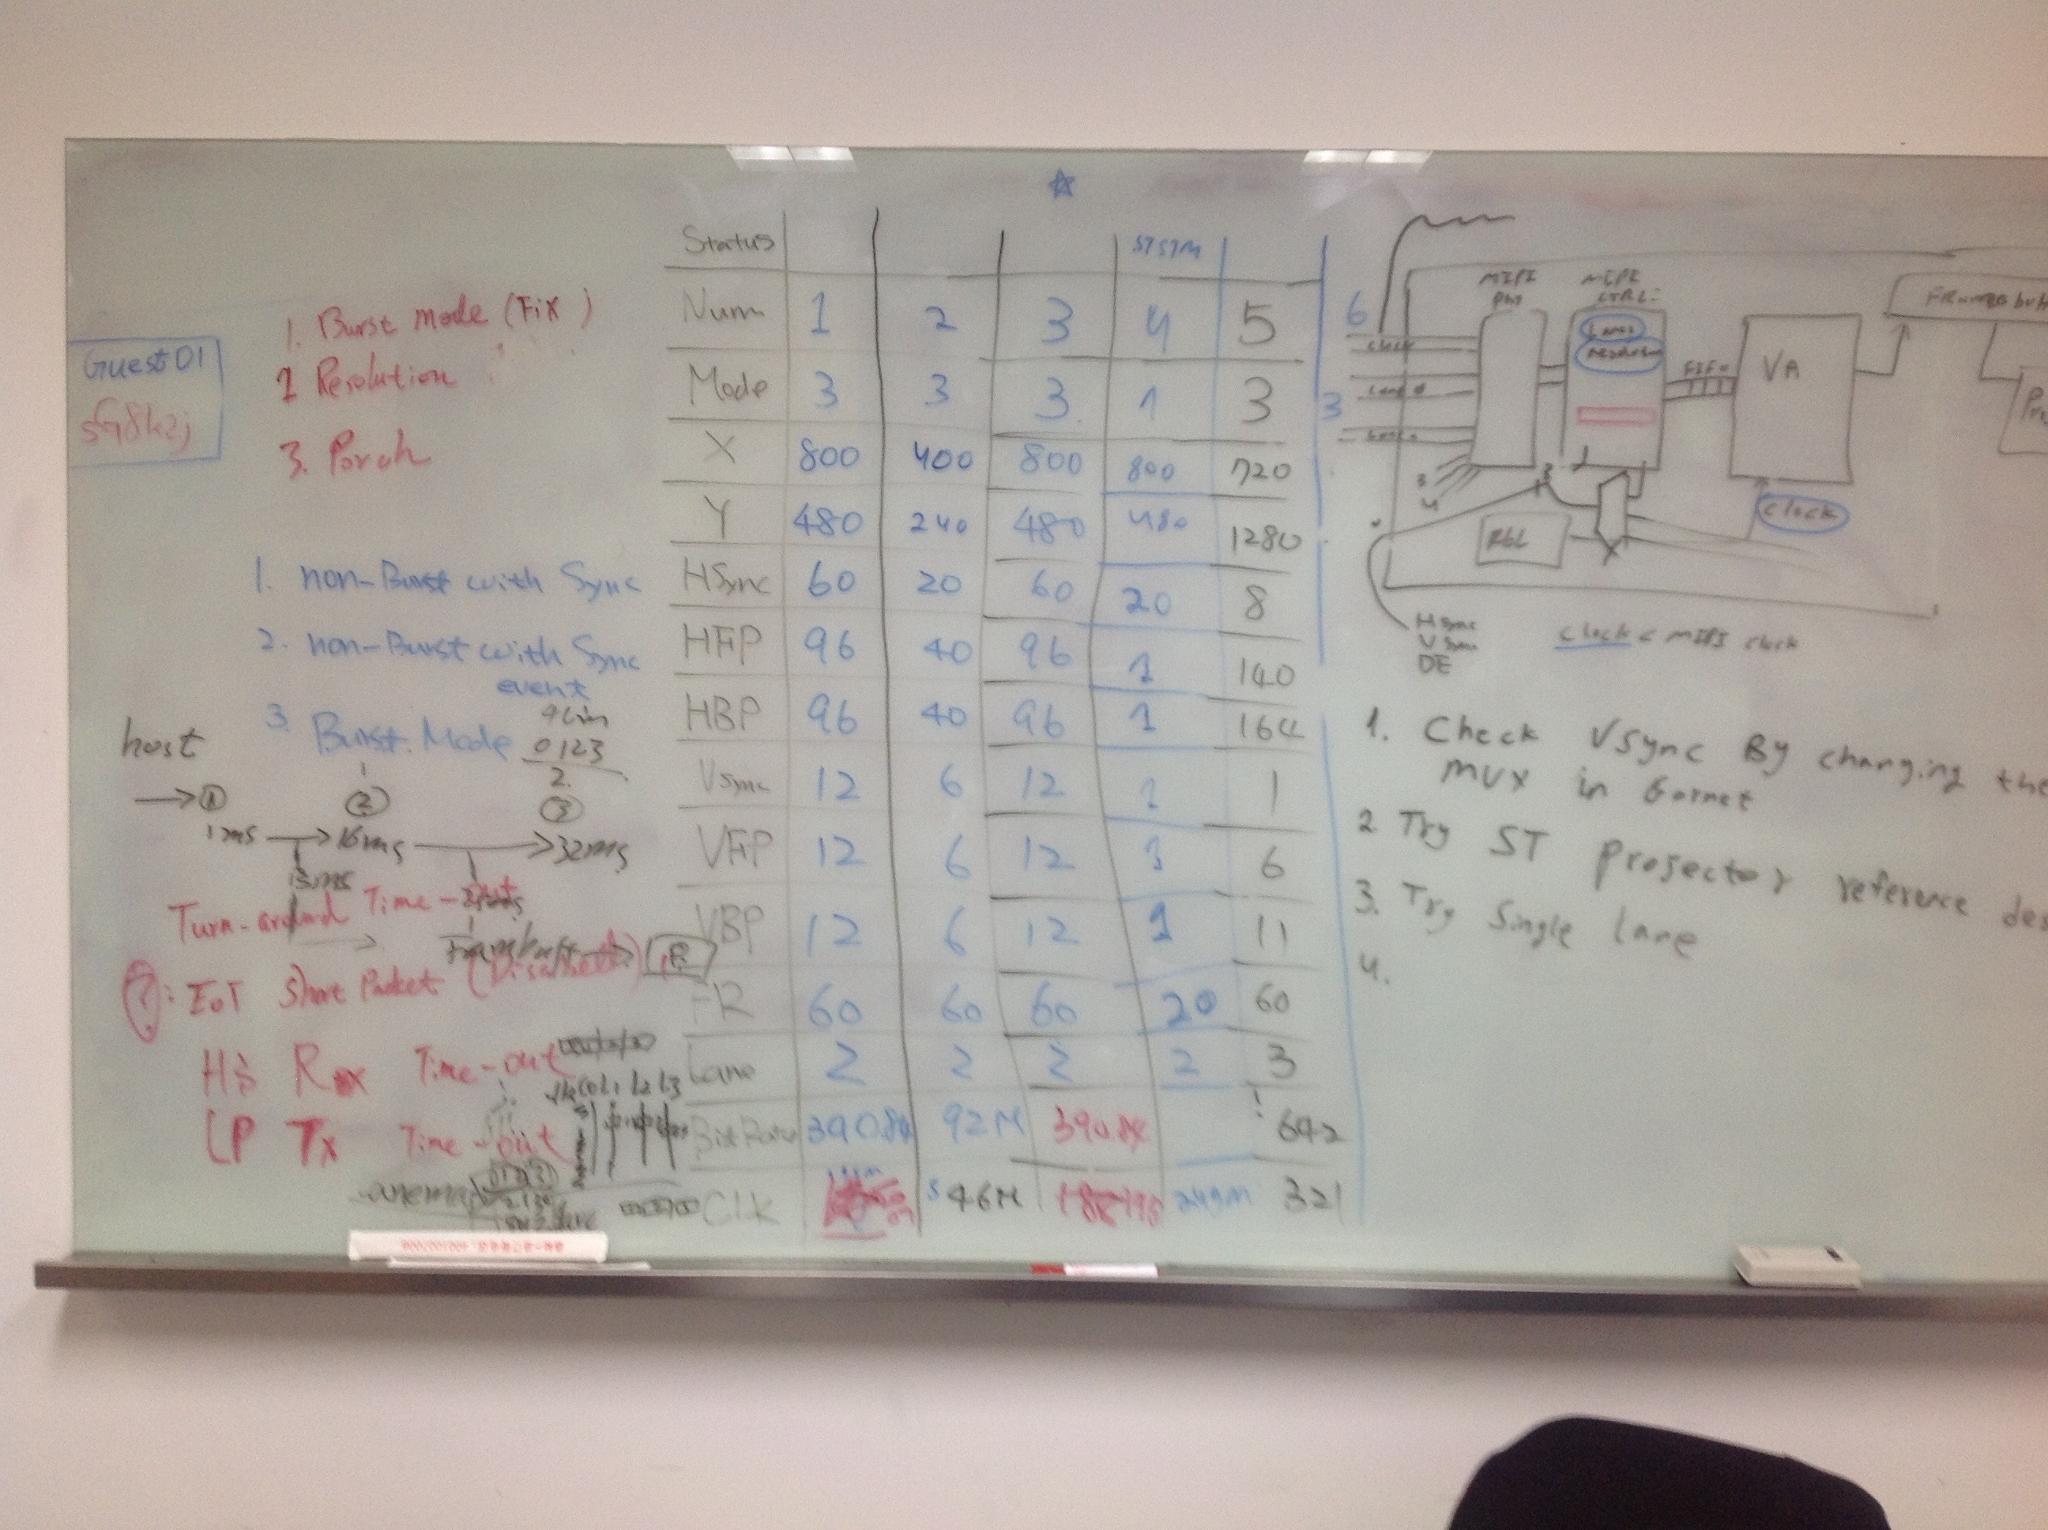 Guest01
1. Burst mode (Fix)
2 Resolution
3. Porch
1. non-Burst with Sync
2. non-Burst with Sync
event
3. Burst. Mode
0123
2.
host
→ ① ② ③
12ms → 16ms → 32ms
13ms
Turn-around Time-out
?: EoT Short Packet (Disabled)
HS Rx Time-out
LP Tx Time-out
Status STSTM
Num 1 2 3 4 5
Mode 3 3 3 1 3
X 800 400 800 800 720
Y 480 240 480 480 1280
HSync 60 20 60 20 8
HFP 96 40 96 1 140
HBP 96 40 96 1 164
Vsync 12 6 12 1 1
VFP 12 6 12 1 6
VBP 12 6 12 1 11
FR 60 60 60 20 60
Lane 2 2 2 2 3
Bit Rate 390.84 92M 390.84 642
Clk 46M 249M 321
6
3
MIPI
MIPI
CTRL
Lanes
resolution
clock
Lane 0
FIFO
VA
3
4
clock
HSync
VSync
DE
clock < MIPI clock
1. Check Vsync By changing the
MUX in Garnet
2 Try ST projector reference des
3. Try Single Lane
4.